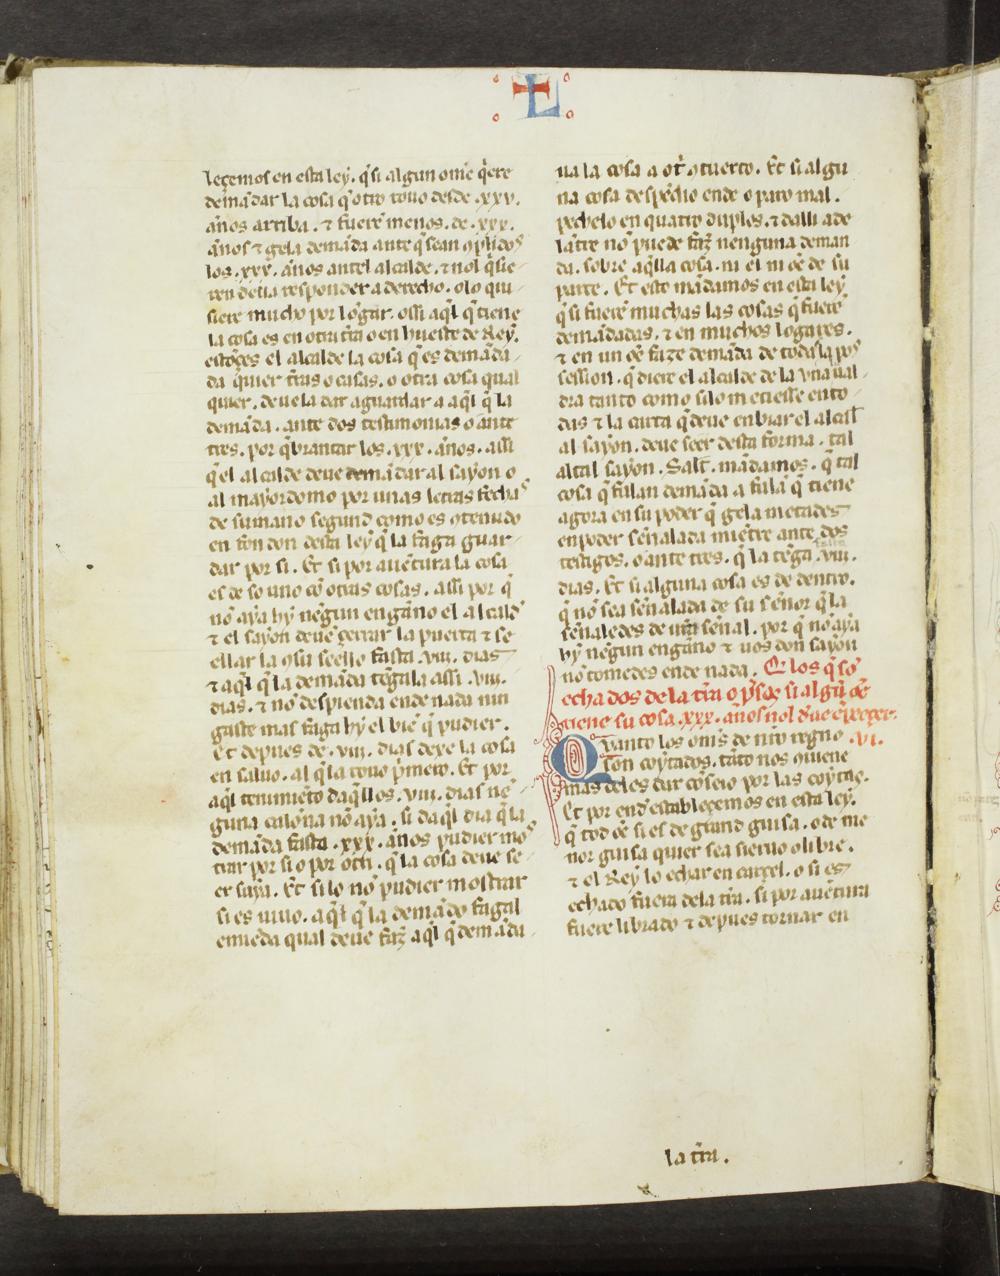 L
leçemos en esta ley. q̃ si algun om̃e q̃ere
demãdar la cosa q̃ otro touo desde .xxv.
años arriba. ⁊ fuerẽ menos. de .xxx.
años ⁊ gela demãda ante q̃ sean cõplidos
los .xxx. años antel alcalde. ⁊ nol q̃sie-
ren deua responder a derecho. o lo qui-
siere mucho por lõgar. o si aq̃l q̃ tiene
la cosa es en otra tr̃ra o en hueste de Rey.
estõçes el alcalde la cosa q̃ es demãda-
da quier tr̃ras o casas. o otra cosa qual
quier. deuela dar aguardar a aq̃l q̃ la
demãda. ante dos testimonias o ante
tres. por q̃brantar los .xxx. años. assi
q̃ el alcalde deue demãdar al sayon o
al mayordomo por unas letras fechas
de su mano segund como es cõtenido
en fondon desta ley q̃ la faga guar-
dar por si. Et si por auẽtura la cosa
es de so uno cõ otras cosas. assi por q̃
nõ aya hy nẽgun engãno el alcalde
⁊ el sayon deue çerrar la puerta ⁊ se-
ellar la cõ su seello fasta .viii. dias
⁊ aq̃l q̃ la demãda tẽgala assi .viii.
dias. ⁊ nõ despienda ende nada nin
gaste mas faga hy el biẽ q̃ pudier.
Et depues de .viii. dias dexe la cosa
en saluo. al q̃ la touo p̃mero. Et por
aq̃l tenimiẽto daq̃llos .viii. dias nẽ-
guna caloña nõ aya. si daq̃l dia q̃ la
demãda fasta .xxx. años pudier mos-
trar por si o por otri. q̃ la cosa deue se-
er suya. Et si lo nõ pudier mostrar
si es uiuo. aq̃l q̃ la demãdo fagal
emiẽda qual deue faz̃ aq̃l q̃ demãda-
ua la cosa a otr̃ cõ tuerto. Et si algu
na cosa despẽdio ende o paro mal.
pechelo en quatro duplos. ⁊ dalli ade
lãtre nõ puede faz̃ nenguna deman
da. sobre aq̃lla cosa. ni el ni oẽ de su
parte. Et esto mãdamos en esta ley
q̃ si fuerẽ muchas las cosas q̃ fuerẽ
demãdadas. ⁊ en muchos logares.
⁊ en un oẽ faze demãda de toda la pos
session. q̃ diere el alcalde de la una ual-
dra tanto como si lo metiesse en to-
das ⁊ la carta q̃ deue enbiar el alcall
al sayon. deue seer desta forma. tal
al tal sayon. Salt̃. mãdamos. q̃ tal
cosa q̃ fulan demãda a fulã q̃ tiene
agora en su poder q̃ gela metades
en poder señalada miẽtre ante dos
testigos. o ante tres. q̃ la tẽga .viii.
dias. Et si alguna cosa es de dentro.
q̃ nõ sea señalada de su señor q̃ la
señaledes de ur̃a señal. por q̃ nõ aya
hy nẽgun engãno ⁊ uos don sayon
nõ tomedes ende nada. E los q̃ sõ
echados de la tr̃ra o p̃sos si algũ oẽ
tiene su cosa .xxx. años nol deue
Quanto los om̃s de nr̃o regno .vi.
son coytados. tãto nos cõuiene
mas deles dar cõseio por las coytas.
Et por end establesçemos en esta ley.
q̃ tod oẽ si es de grand guisa. o de me
nor guisa quier sea sieruo o libre.
⁊ el Rey lo echar en carçel. o si es
echado fuera dela tr̃ra. si por auẽtura
fuere librado ⁊ depues tornar en
la tr̃ra.